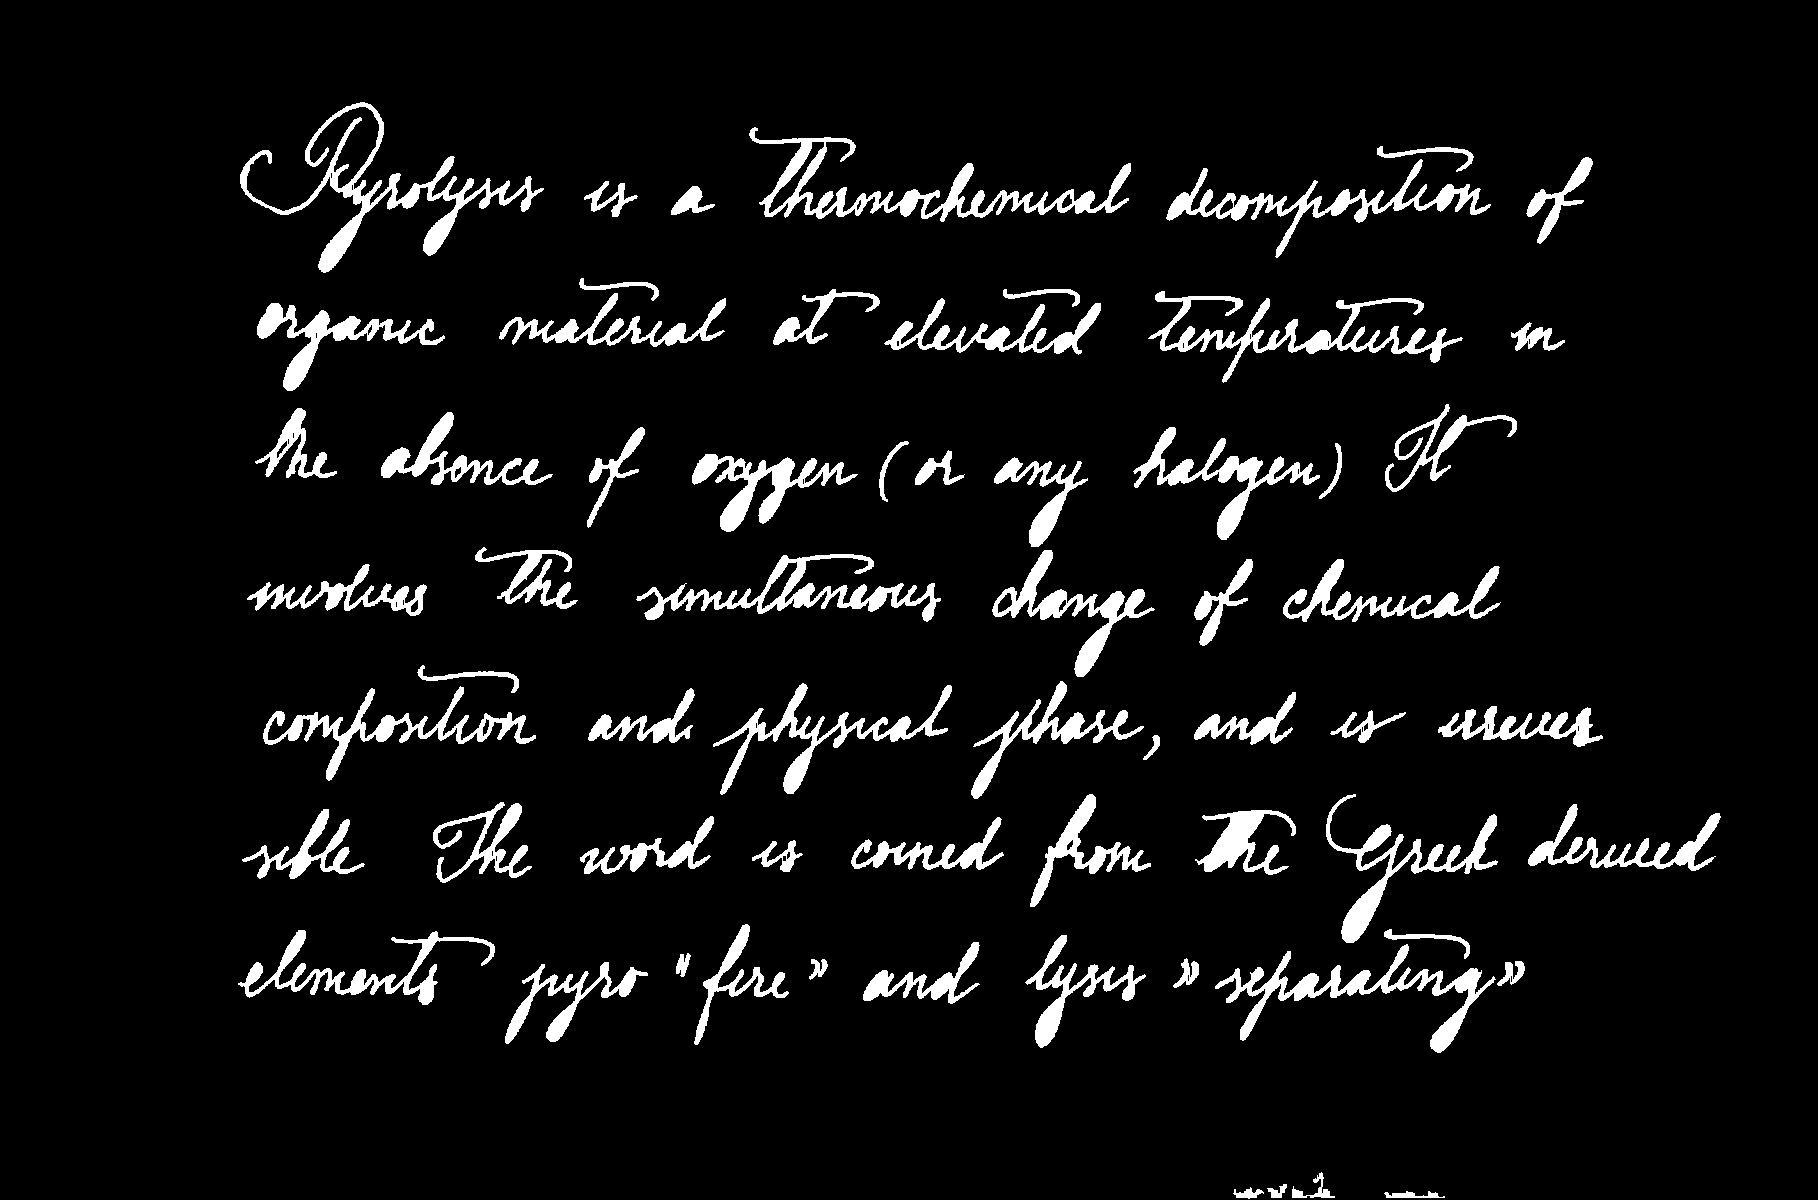 Pyrolysis is a thermochemical decomposition of
organic material at elevated temperatures in
the absence of oxygen (or any halogen) It
involves the simultaneous change of chemical
composition and physical phase, and is irrever
sible The word is coined from the Greek derived
elements pyro "fire" and lysis »separating»